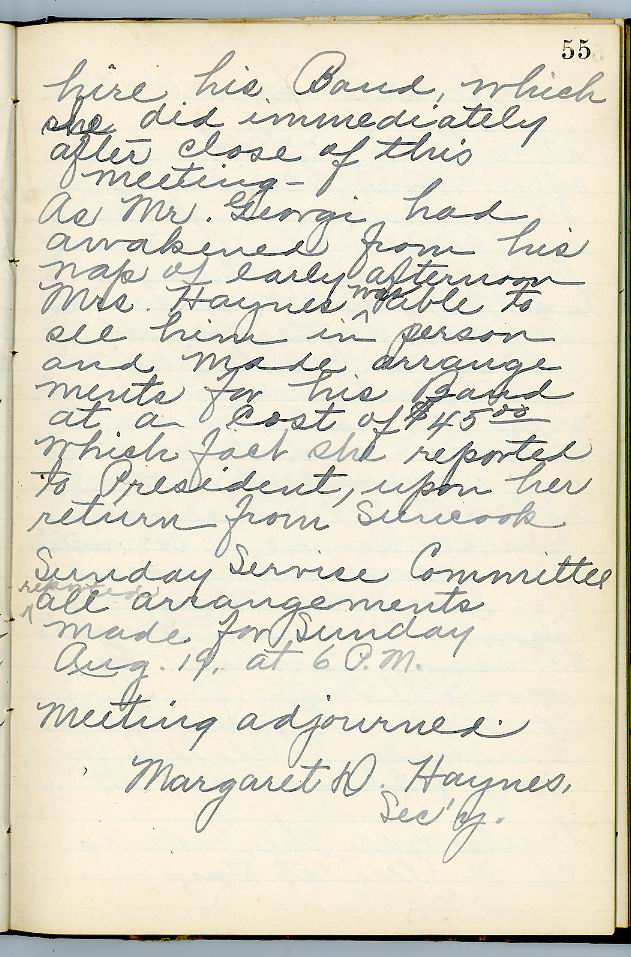 55
hire his Band, which
she did immediately
after close of this
meeting -
As Mr. Georgi had
awakened from his
nap of early afternoon
Mrs. Haynes was able to
see him in person
and made arrange
ments for his Band
at a cost of $45.00
which fact she reported
to President, upon her
return from Suncook
Sunday Service Committee
reported
all arrangements
made for Sunday
Aug. 19. at 6 P.M.
Meeting adjourned.
Margaret D. Haynes,
Sec'y.